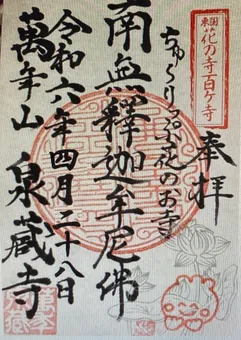 東国花の寺百ケ寺
奉拝
ちゅうりっぷ花のお寺
南無釋迦牟尼佛
令和六年四月二十八日
萬年山 泉蔵寺